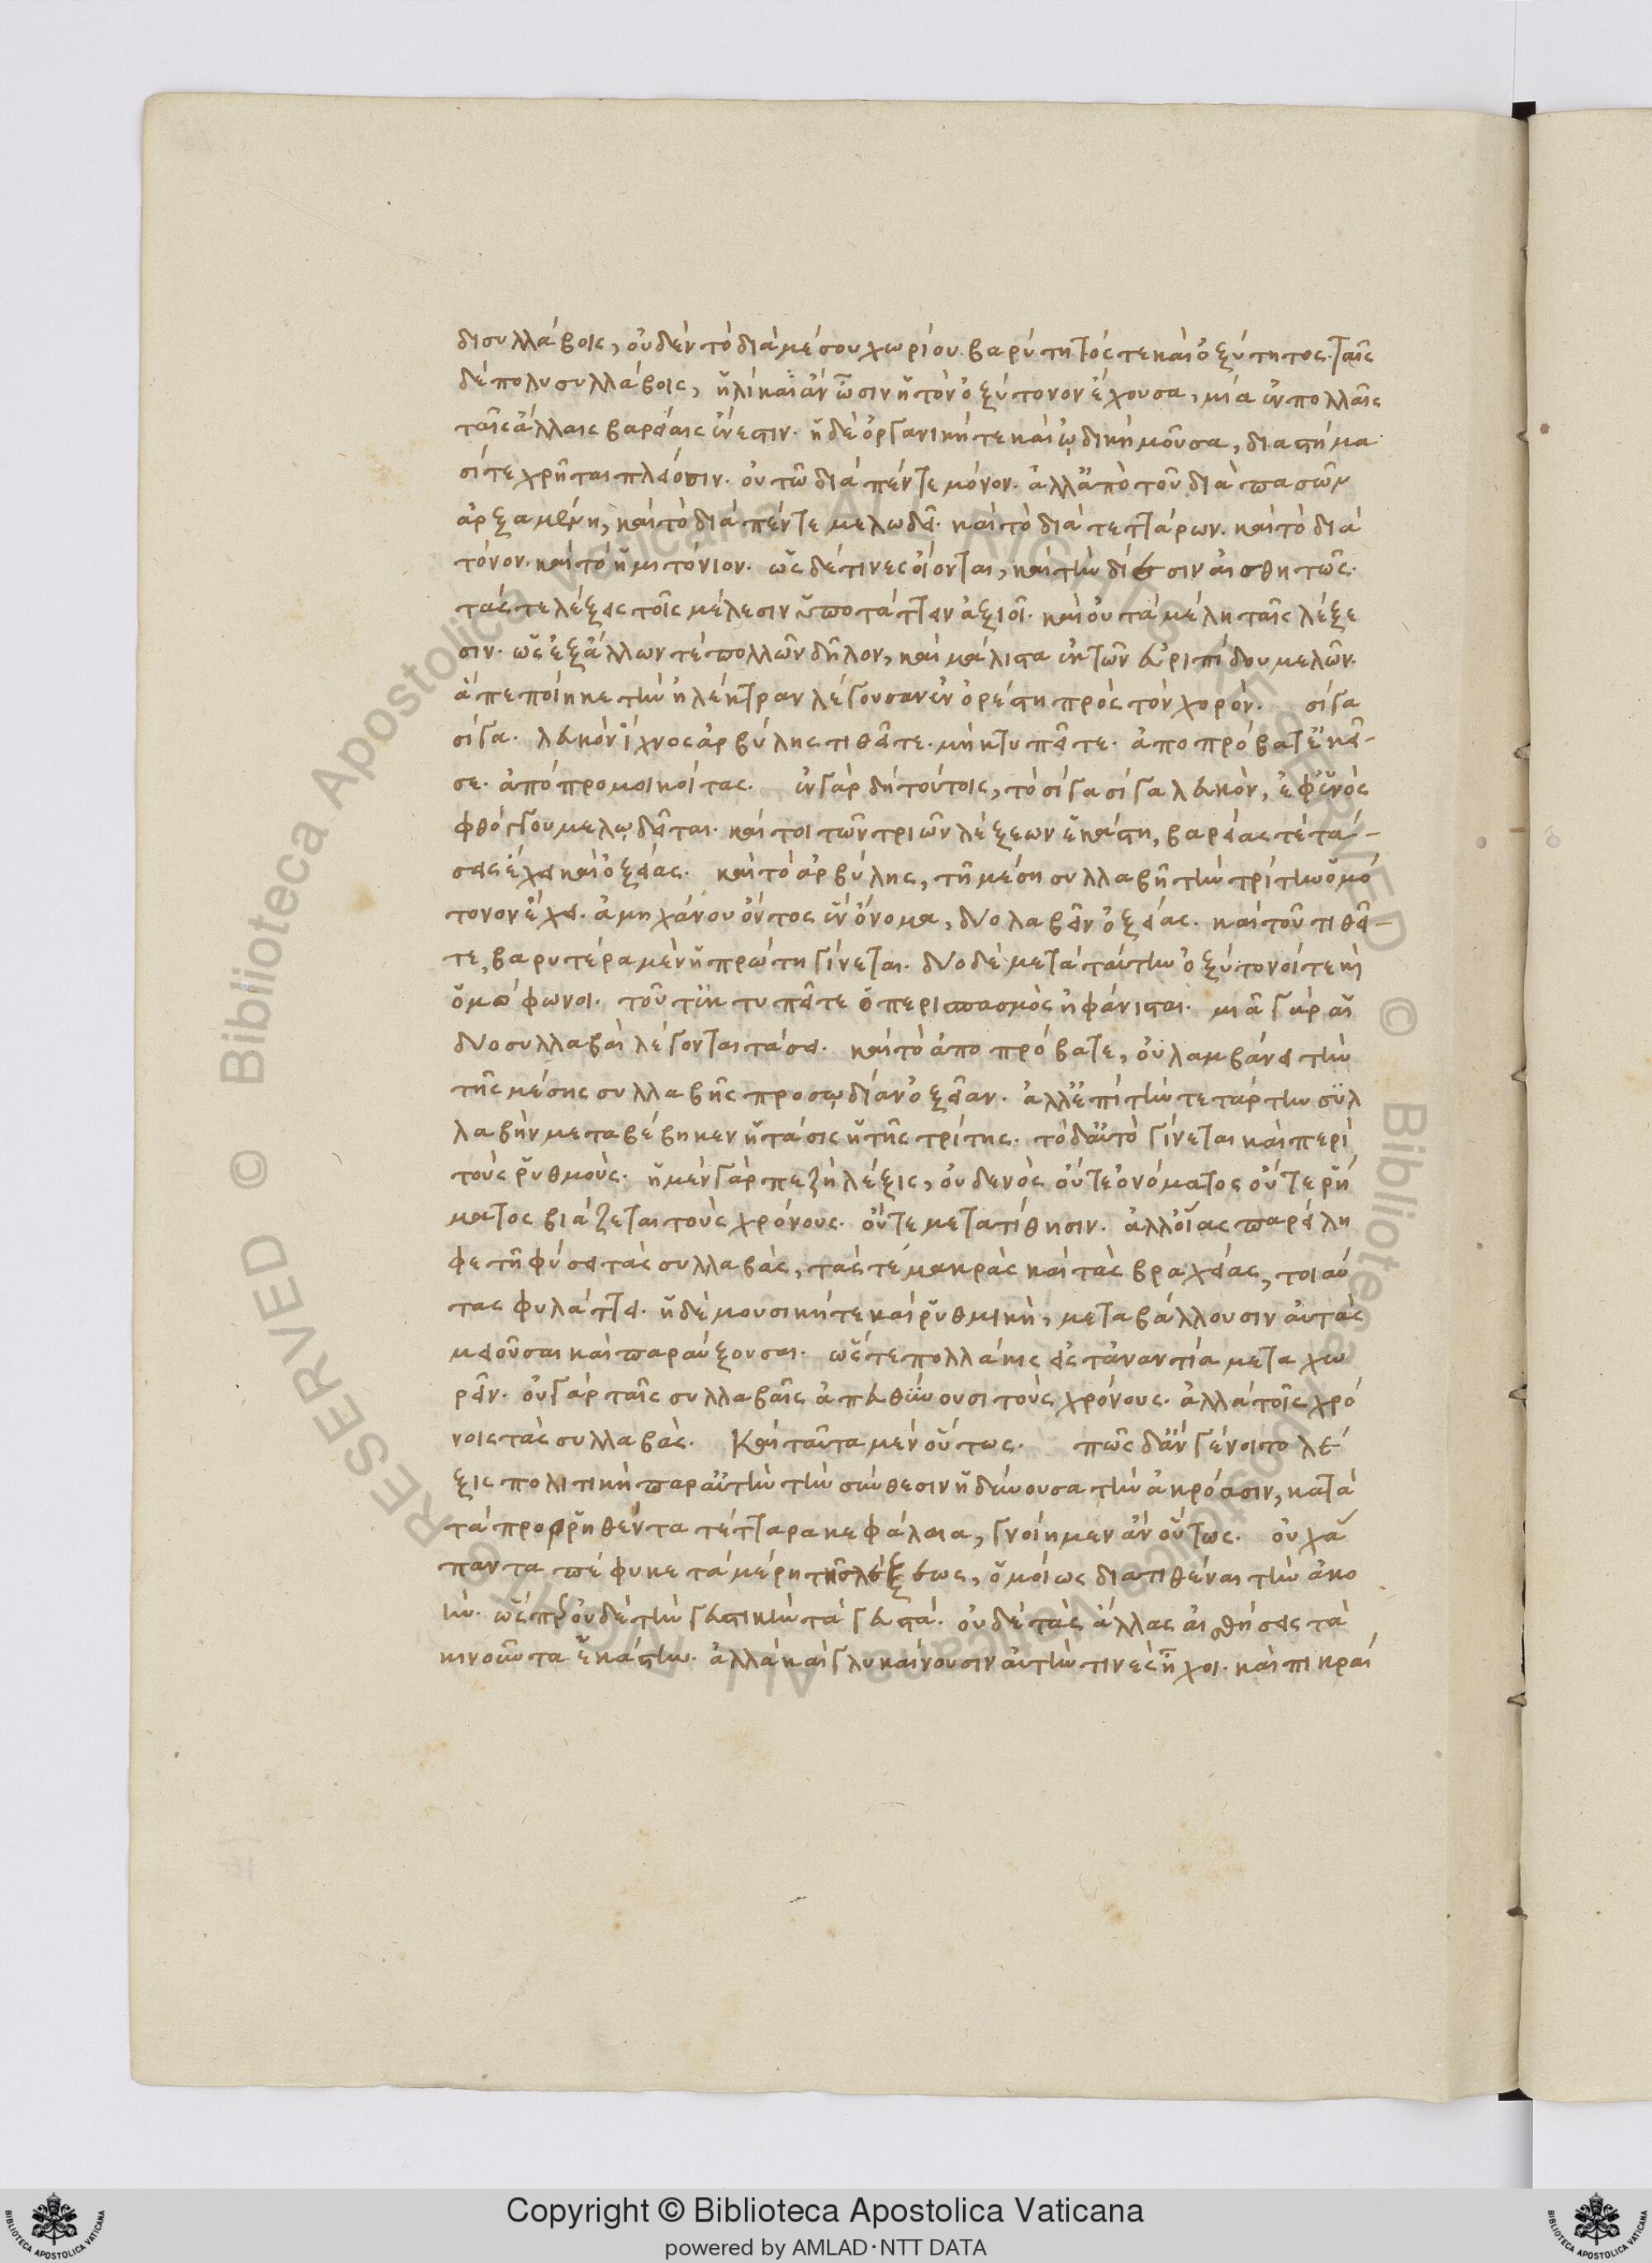 δισυλλάβοις, οὐδὲν τὸ διὰ μέσου χωρίου βαρύτητός τε καὶ ὀξύτητος. ταῖς
δὲ πολυσυλλάβοις, ἡλίκαι ἂν ὦσιν ἡ τὸν ὀξὺν τόνον ἔχουσα, μία ἐν πολλαῖς
ταῖς ἄλλαις βαρείαις ἔνεστιν. ἡ δὲ ὀργανική τε καὶ ᾠδικὴ μοῦσα, διαστήμα
σί τε χρῆται πλείοσιν. οὐ τῶ διὰ πέντε μόνον. ἀλλ' ἀπὸ τοῦ διὰ πασῶν
ἀρξαμένη, καὶ τὸ διὰ πέντε μελωδεῖ. καὶ τὸ διὰ τεττάρων. καὶ τὸ διὰ
τόνον. καὶ τὸ ἡμιτόνιον. ὡς δέ τινες οἴονται, καὶ τὴν δίεσιν αἰσθητῶς.
τάς τε λέξεις τοῖς μέλεσιν ὑποτάττειν ἀξιοῖ. καὶ οὐ τὰ μέλη ταῖς λέξε
σιν. ὡς ἐξ ἄλλων τε πολλῶν δῆλον, καὶ μάλιστα ἐκ τῶν εὐριπίδου μελῶν.
ἃ πεποίηκε τὴν ἠλέκτραν λέγουσαν ἐν ὀρέστη πρὸς τὸν χορόν. σίγα
σίγα. λευκὸν ἴχνος ἀρβύλης τιθεῖτε. μὴ κτυπεῖτε. ἀποπρόβατ' ἐκεῖ-
σε. ἀπόπρο μοι κοίτας. ἐν γὰρ δὴ τούτοις, τὸ σίγα σίγα λευκὸν, ἐφ' ἑνὸς
φθόγγου μελῳδεῖται. καί τοι τῶν τριῶν λέξεων ἑκάστη, βαρείας τε τά-
σεις ἔχει καὶ ὀξείας. καὶ τὸ ἀρβύλης, τῆ μέση συλλαβῆ τὴν τρίτην ὁμό
τονον ἔχει. ἀμηχάνου ὄντος ἓν ὄνομα, δύο λαβεῖν ὀξείας. καὶ τοῦ τιθεῖ-
τε, βαρυτέρα μὲν ἡ πρώτη γίνεται. δύο δὲ μετὰ ταύτην ὀξύτονοί τε καὶ
ὁμόφωνοι. τοῦ τε κτυπεῖτε ὁ περισπασμὸς ἠφάνισται. μιᾶ γὰρ αἱ
δύο συλλαβαὶ λέγονται τάσει. καὶ τὸ ἀποπρόβατε, οὐ λαμβάνει τὴν
τῆς μέσης συλλαβῆς προσῳδίαν ὀξεῖαν. ἀλλ' ἐπὶ τὴν τετάρτην συλ
λαβὴν μεταβέβηκεν ἡ τάσις ἡ τῆς τρίτης. τὸ δ' αὐτὸ γίνεται καὶ περὶ
τοὺς ῥυθμούς. ἡ μὲν γὰρ πεζὴ λέξις, οὐδενὸς οὔτε ὀνόματος οὔτε ῥή
ματος βιάζεται τοὺς χρόνους. οὔτε μετατίθησιν. ἀλλ' οἵας παρείλη
φε τῆ φύσει τὰς συλλαβὰς, τάς τε μακρὰς καὶ τὰς βραχείας, τοιαύ
τας φυλάττει. ἡ δὲ μουσική τε καὶ ῥυθμικὴ, μεταβάλλουσιν αὐτὰς
μειοῦσαι καὶ παραύξουσαι. ὥς τε πολλάκις εἰς τἀναντία μεταχω
ρεῖν. οὐ γὰρ ταῖς συλλαβαῖς ἀπευθύνουσι τοὺς χρόνους. ἀλλὰ τοῖς χρό
νοις τὰς συλλαβάς. Καὶ ταῦτα μὲν οὕτως. πῶς δ' ἂν γένοιτο λέ
ξις πολιτικὴ παρ' αὐτὴν τὴν σύνθεσιν ἡδύνουσα τὴν ἀκρόασιν, κατὰ
τὰ προρρηθέντα τέτταρα κεφάλαια, γνοίημεν ἂν οὕτως. οὐχ ἅ
παντα πέφυκε τὰ μέρη τῆς λέξεως, ὁμοίως διατιθέναι τὴν ἀκο
ήν. ὥσπερ οὐδὲ τὴν γευστικὴν τὰ γευστά. οὐδὲ τὰς ἄλλας αἰσθήσεις τὰ
κινοῦντα ἑκάστην. ἀλλὰ καὶ γλυκαίνουσιν αὐτὴν τινὲς ἦχοι. καὶ πικραί
Copyright © Biblioteca Apostolica Vaticana
powered by AMLAD·NTT DATA